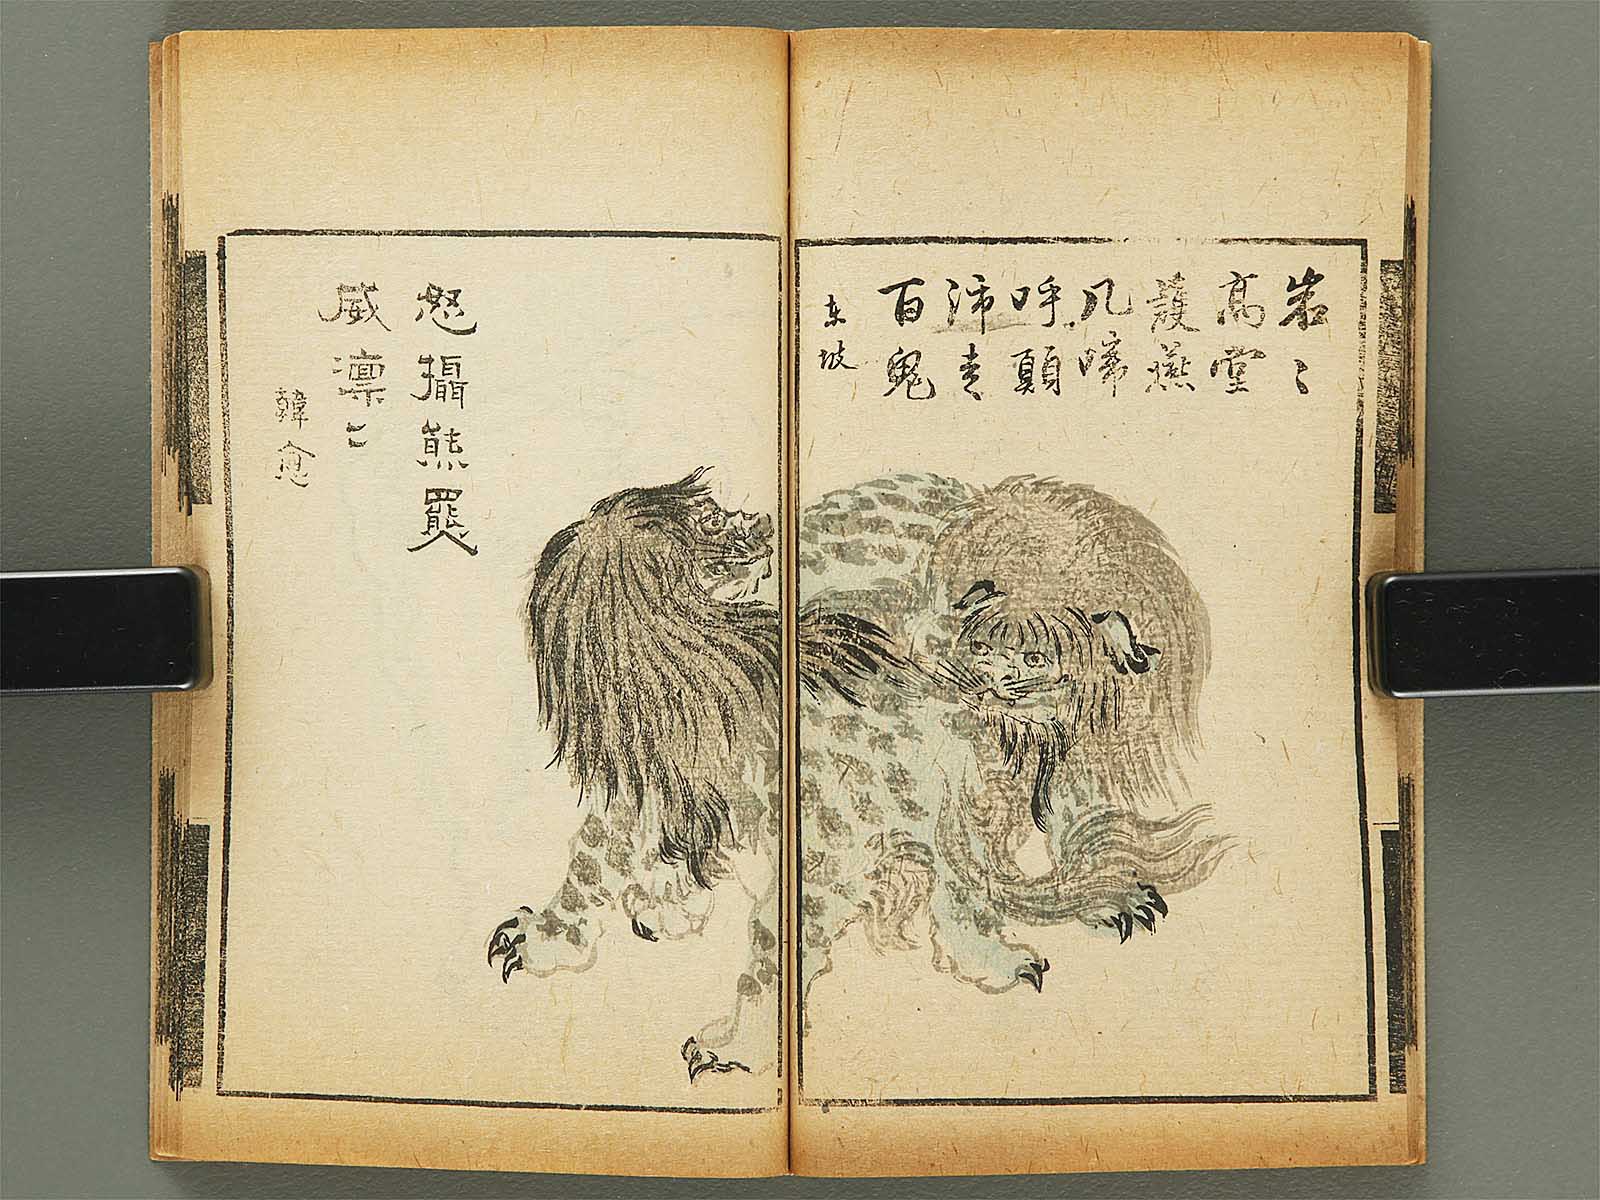 岩〻
高堂
護燕
几啼
呼顛
沛走
百鬼
東坡
怒攝熊羆
威凛〻
韓愈